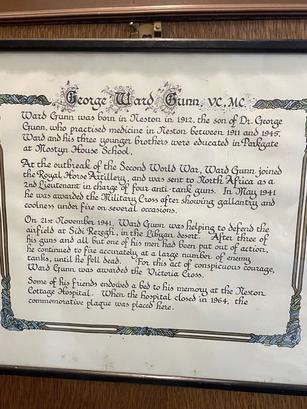 George Ward Gunn, VC, MC.
Ward Gunn was born in Neston in 1912, the son of Dr. George
Gunn, who practised medicine in Neston between 1911 and 1945.
Ward and his three younger brothers were educated in Parkgate
at Mostyn House School.
At the outbreak of the Second World War, Ward Gunn joined
the Royal Horse Artillery, and was sent to North Africa as a
2nd Lieutenant in charge of four anti-tank guns. In May 1941
he was awarded the Military Cross after showing gallantry and
coolness under fire on several occasions.
On 21st November 1941, Ward Gunn was helping to defend the
airfield at Sidi Rezegh, in the Libyan desert. After three of
his guns and all but one of his men had been put out of action,
he continued to fire accurately at a large number of enemy
tanks, until he fell dead. For this act of conspicuous courage,
Ward Gunn was awarded the Victoria Cross.
Some of his friends endowed a bed to his memory at the Neston
Cottage Hospital. When the hospital closed in 1964, the
commemorative plaque was placed here.